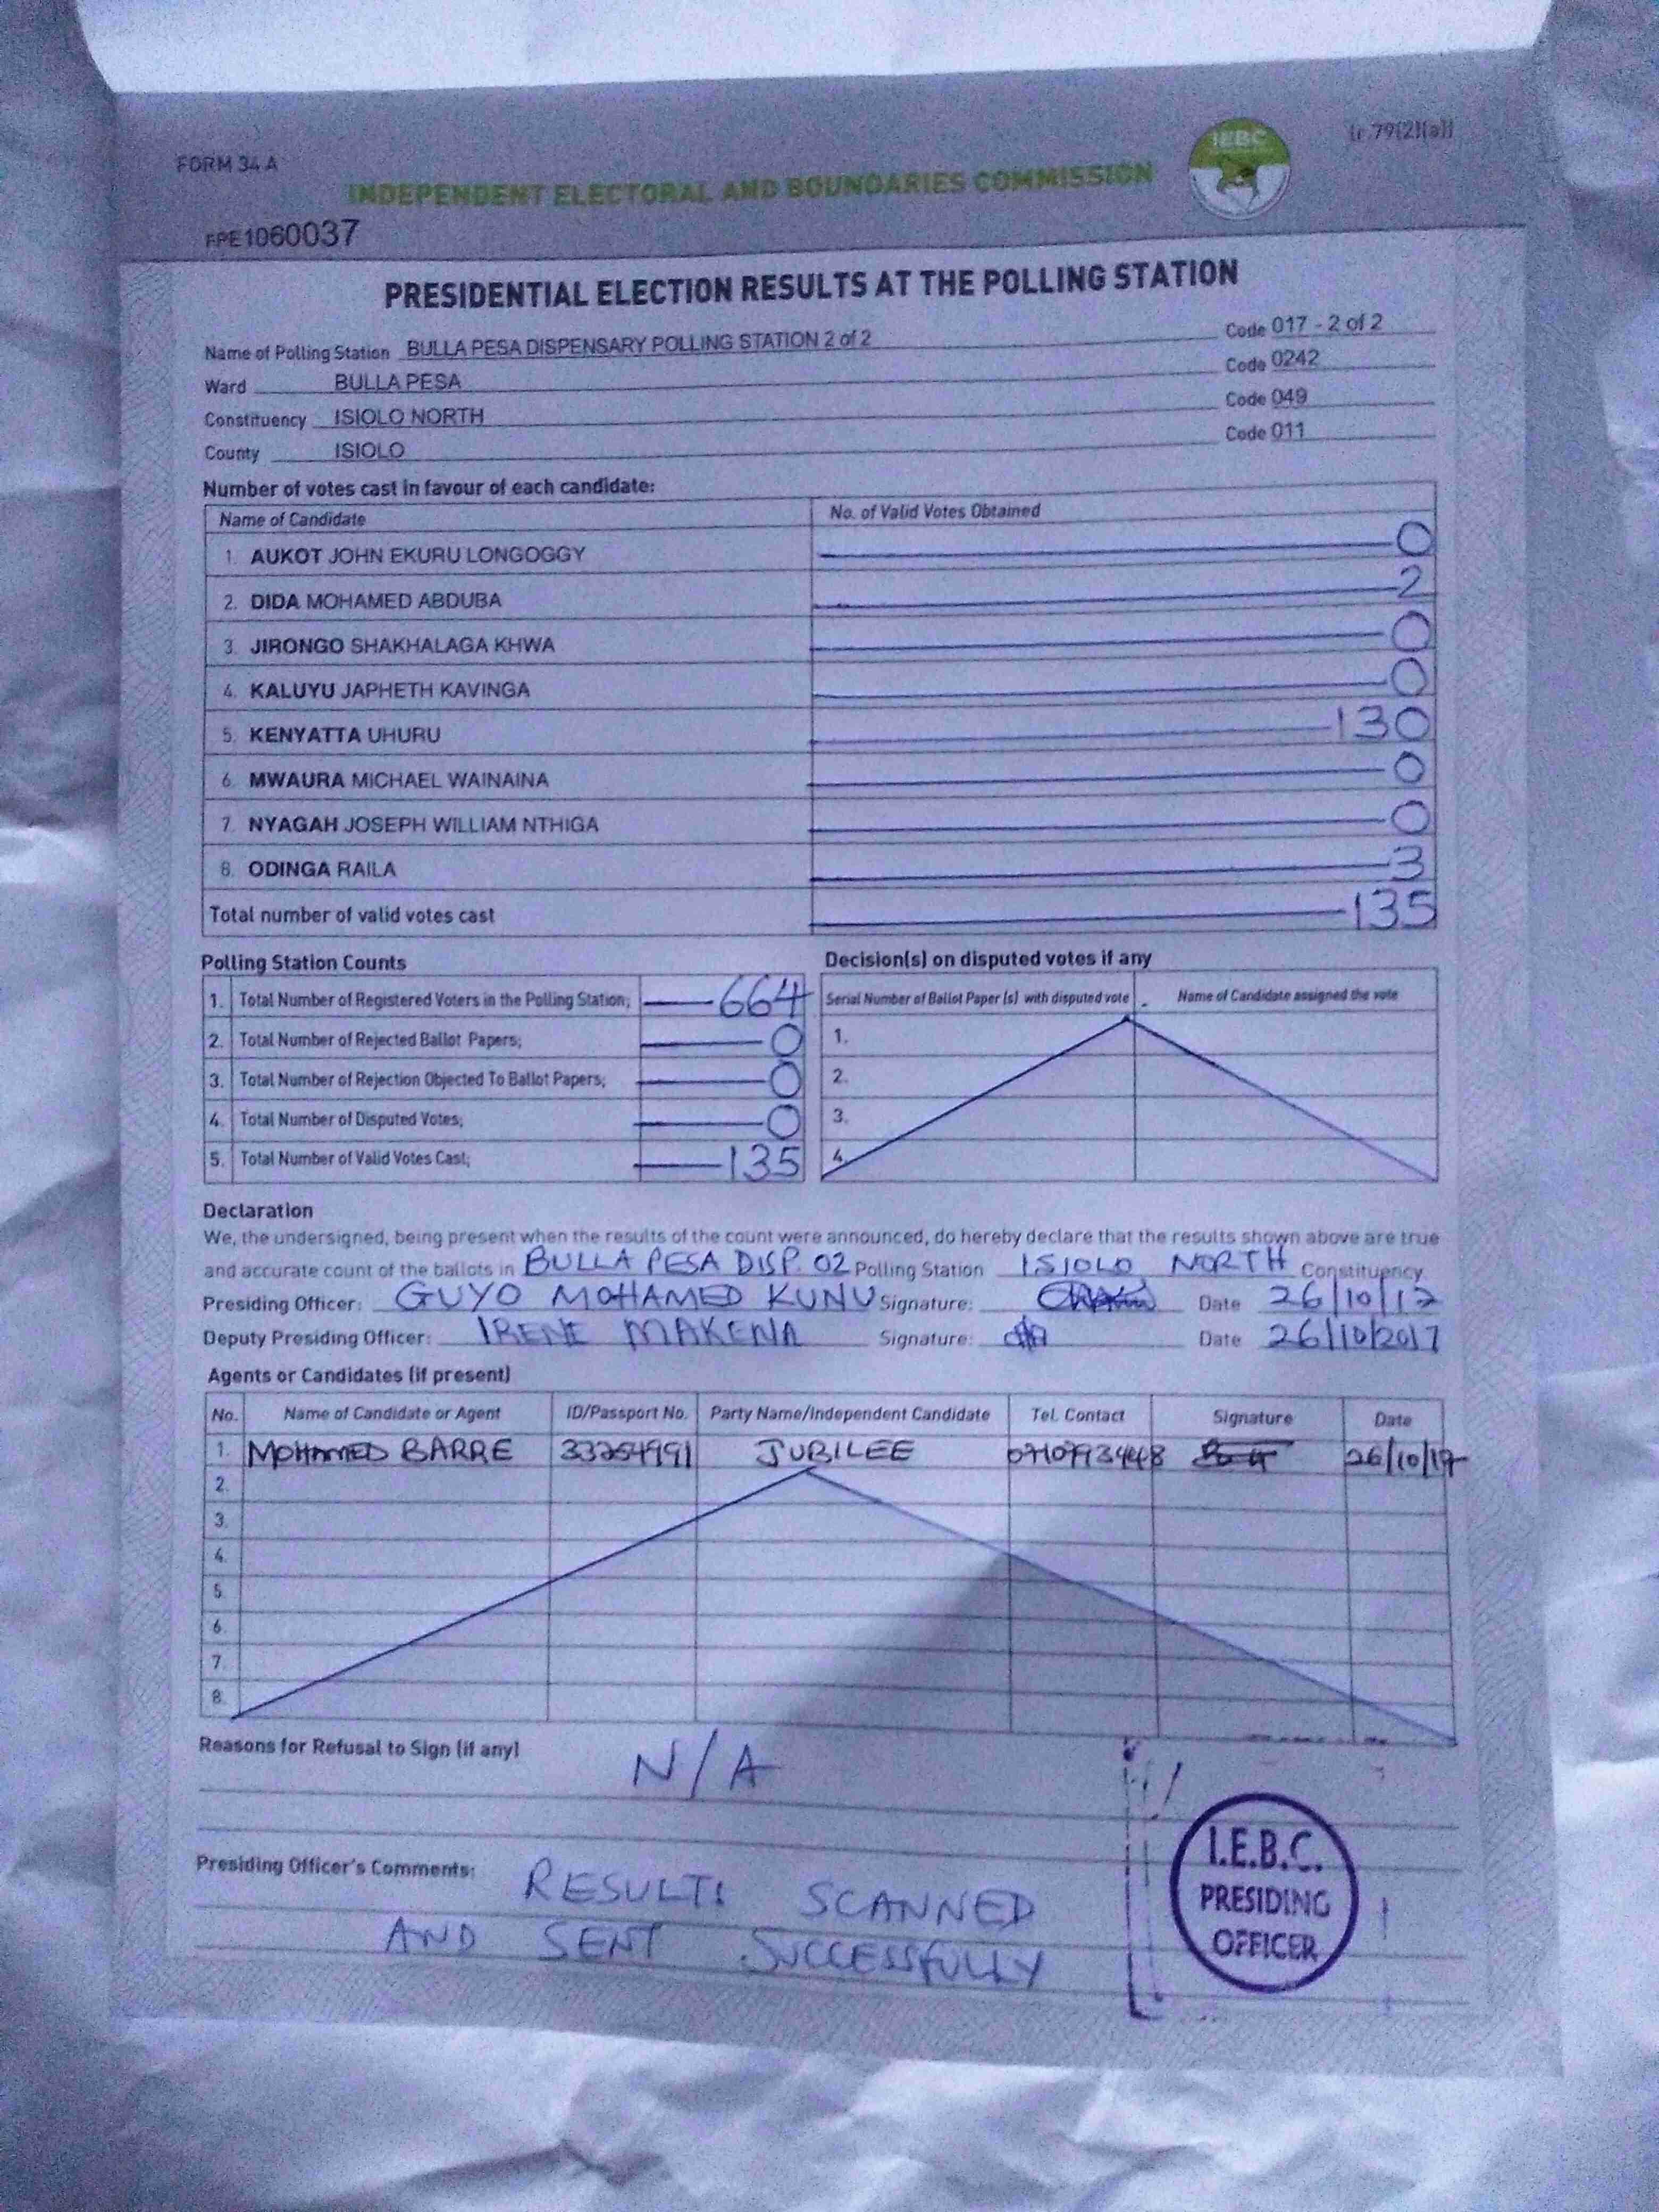 FORM 34 A
IEBC
(r.79(2)(a))
INDEPENDENT ELECTORAL AND BOUNDARIES COMMISSION
FPE1060037
PRESIDENTIAL ELECTION RESULTS AT THE POLLING STATION
Name of Polling Station BULLA PESA DISPENSARY POLLING STATION 2 of 2 Code 017 - 2 of 2
Ward BULLA PESA Code 0242
Constituency ISIOLO NORTH Code 049
County ISIOLO Code 011
Number of votes cast in favour of each candidate:
Name of Candidate No. of Valid Votes Obtained
1. AUKOT JOHN EKURU LONGOGGY 0
2. DIDA MOHAMED ABDUBA 2
3. JIRONGO SHAKHALAGA KHWA 0
4. KALUYU JAPHETH KAVINGA 0
5. KENYATTA UHURU 130
6. MWAURA MICHAEL WAINAINA 0
7. NYAGAH JOSEPH WILLIAM NTHIGA 0
8. ODINGA RAILA 3
Total number of valid votes cast 135
Polling Station Counts
1. Total Number of Registered Voters in the Polling Station; 664
2. Total Number of Rejected Ballot Papers; 0
3. Total Number of Rejection Objected To Ballot Papers; 0
4. Total Number of Disputed Votes; 0
5. Total Number of Valid Votes Cast; 135
Decision(s) on disputed votes if any
Serial Number of Ballot Paper (s) with disputed vote Name of Candidate assigned the vote
1.
2.
3.
4.
Declaration
We, the undersigned, being present when the results of the count were announced, do hereby declare that the results shown above are true
and accurate count of the ballots in BULLA PESA DISP. 02 Polling Station ISIOLO NORTH Constituency
Presiding Officer: GUYO MOHAMED KUNU Signature: Date 26/10/17
Deputy Presiding Officer: IRENE MAKENA Signature: Date 26/10/2017
Agents or Candidates (if present)
No. Name of Candidate or Agent ID/Passport No. Party Name/Independent Candidate Tel. Contact Signature Date
1. MOHAMED BARRE 33254991 JUBILEE 0710793448 26/10/17
2.
3.
4.
5.
6.
7.
8.
Reasons for Refusal to Sign (if any)
N/A
Presiding Officer's Comments: RESULTS SCANNED
AND SENT SUCCESSFULLY
I.E.B.C.
PRESIDING
OFFICER